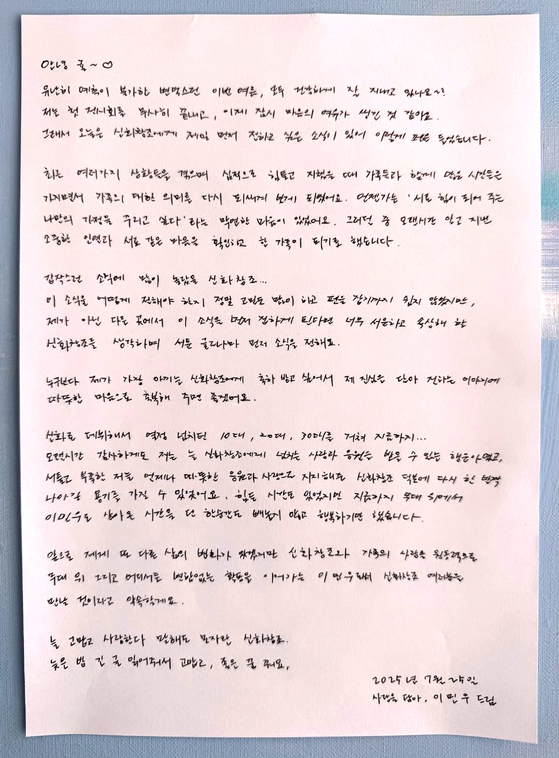 안녕 귤~♡
유난히 예측이 불가한 변덕스런 이번 여름, 모두 건강하게 잘 지내고 있나요~?
저는 첫 전시회를 무사히 끝내고, 이제 잠시 마음의 여유가 생긴 것 같아요.
그래서 오늘은 신화창조에게 제일 먼저 전하고 싶은 소식이 있어 이렇게 펜을 들었습니다.
최근 여러가지 상황들을 겪으며 심적으로 힘들고 지쳤을 때 가족들과 함께 많은 시간들을
가지면서 가족의 대한 의미를 다시 되새겨 보게 되었어요. 언젠가는 '서로 힘이 되어 주는
나만의 가정을 꾸리고 싶다'라는 막연한 마음이 있었어요. 그러던 중 오랜시간 알고 지낸
소중한 인연과 서로 같은 마음을 확인하고 한 가족이 되기로 했습니다.
갑작스런 소식에 많이 놀랐을 신화창조...
이 소식을 어떻게 전해야 하지 정말 고민도 많이 하고 펜을 잡기까지 쉽지 않았지만,
제가 아닌 다른 곳에서 이 소식을 먼저 전하게 된다면 너무 서운하고 속상해 할
신화창조을 생각하며 서툰 글이나마 먼저 소식을 전해요.
누구보다 제가 가장 아끼는 신화창조에게 축하 받고 싶어서 제 진심을 담아 전하는 이야기에
따뜻한 마음으로 축복해 주면 좋겠어요.
신화로 데뷔해서 열정 넘치던 10대, 20대, 30대를 거쳐 지금까지...
오랜시간 감사하게도 저는 늘 신화창조에게 넘치는 사랑과 응원을 받을 수 있는 행운아였고,
서툴고 부족한 저를 언제나 따뜻한 응원과 사랑으로 지지해준 신화창조 덕분에 다시 한 번 더
나아갈 용기를 가질 수 있었어요. 힘든 시간도 있었지만 지금까지 무대 위에서
이민우로 살아온 시간을 단 한순간도 빼놓지 않고 행복하기만 했습니다.
앞으로 제게 또 다른 삶의 변화가 생겼지만 신화창조와 가족의 사랑을 원동력으로
무대 위 그리고 어디서든 변함없는 활동을 이어가는 이민우로 신화창조 여러분을
만날 것이라고 약속할게요.
늘 고맙고 사랑한다 말해도 모자란 신화창조.
늦은 밤 긴 글 읽어줘서 고맙고, 좋은 꿈 꿔요.
2025년 7월 25일
사랑을 담아, 이민우 드림